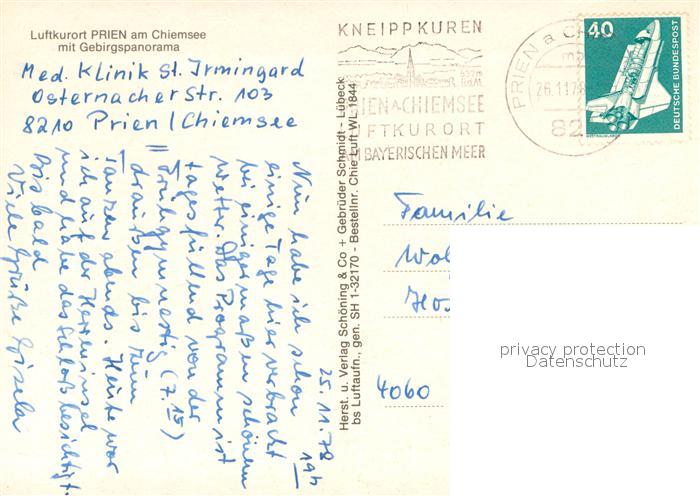 Luftkurort PRIEN am Chiemsee
mit Gebirgspanorama
Med. Klinik St. Irmingard
Osternacher Str. 103
8210 Prien / Chiemsee
25.11.78
19h
Nun habe ich schon
einige Tage hier verbracht –
bei einigermaßen schönem
Wetter. Das Programm ist
tagesfüllend von der
Frühgymnastig (7.15)
draußen bis zum
Tanzen abends. Heute war
ich auf der Herreninsel
und habe das Schloß besichtigt.
Bis bald
Viele Grüße Gisela
Herst. u. Verlag Schöning & Co + Gebrüder Schmidt - Lübeck
bs Luftaufn., gen. SH 1-32170 - Bestellnr. Chie Luft WL 1844
KNEIPPKUREN
PRIEN A. CHIEMSEE
LUFTKURORT
AM BAYERISCHEN MEER
PRIEN a CH
26.11.78
82
40
DEUTSCHE BUNDESPOST
Familie
Wol
Hos
4060
privacy protection
Datenschutz